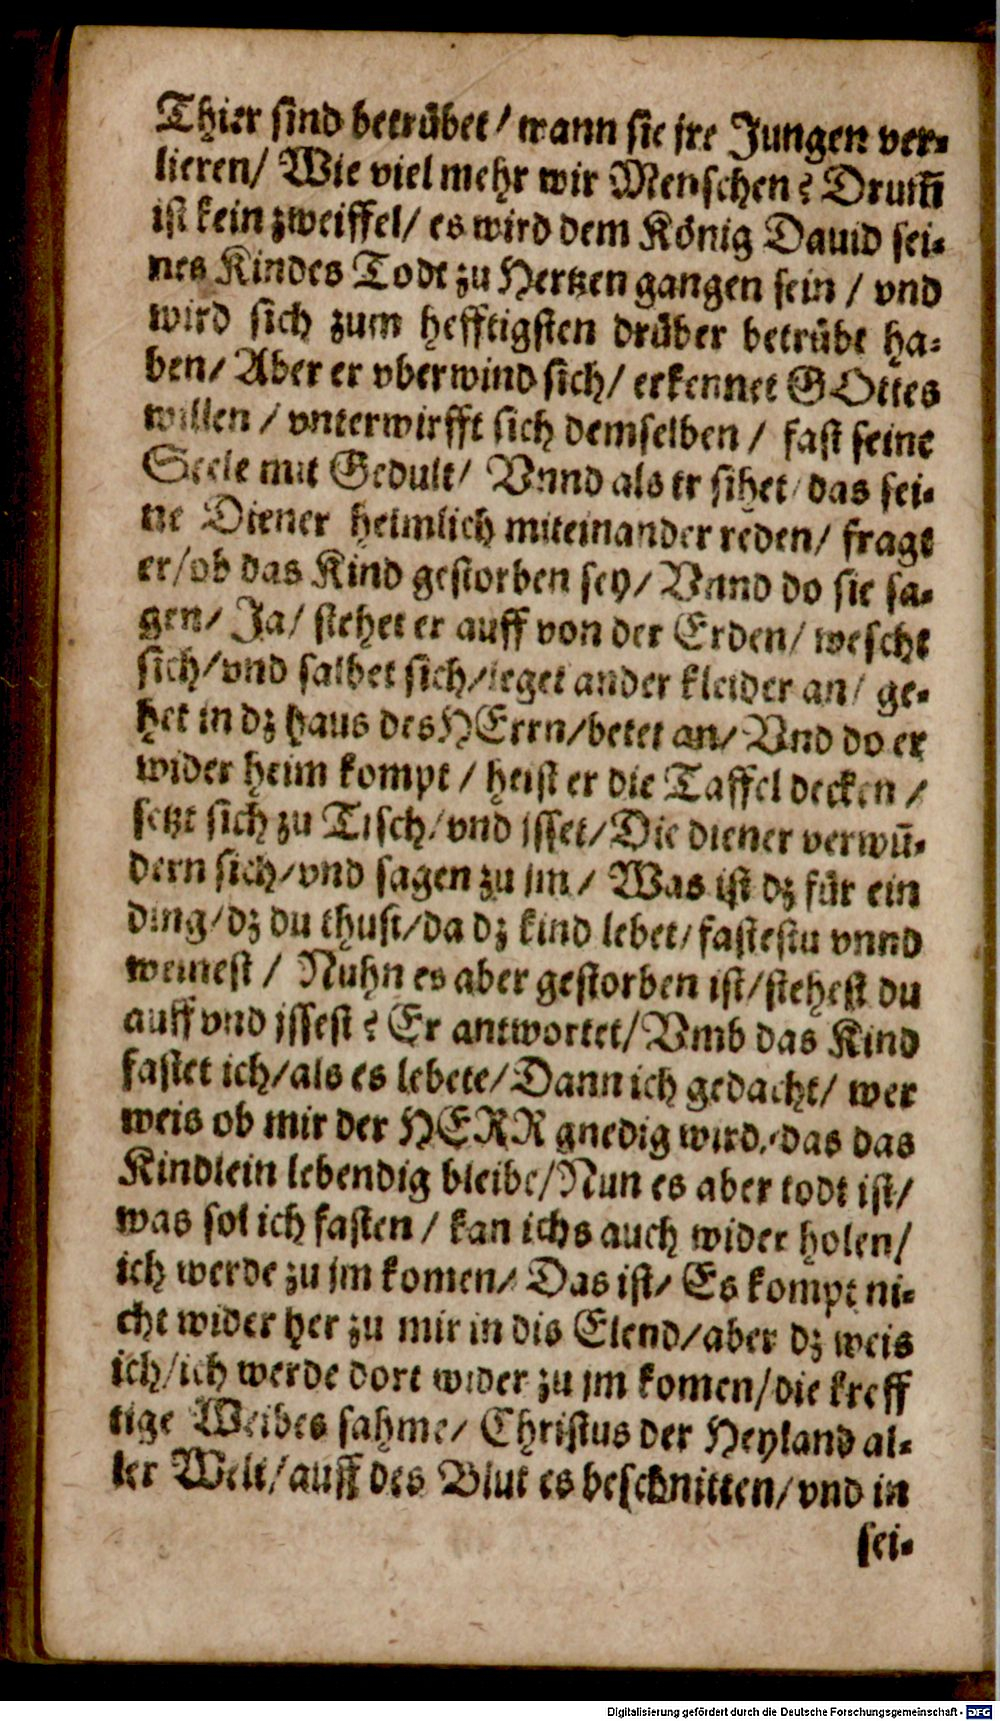 Thier sind betrübet/ wann sie jre Jungen ver-
lieren/ Wie viel mehr wir Menschen? Drum̃
ist kein zweiffel/ es wird dem König Dauid sei-
nes Kindes Todt zu Hertzen gangen sein / vnd
wird sich zum hefftigsten drüber betrübt ha-
ben/ Aber er vberwind sich/ erkennet GOttes
willen / vnterwirfft sich demselben / fast seine
Seele mit Gedult/ Vnnd als er sihet/ das sei-
ne Diener heimlich miteinander reden/ fragt
er/ob das Kind gestorben sey/ Vnnd do sie sa-
gen/ Ja/ stehet er auff von der Erden/ wescht
sich/vnd salbet sich/leget ander kleider an/ ge-
het in dz haus des HErrn/betet an/ Vnd do er
wider heim kompt / heist er die Taffel decken /
setzt sich zu Tisch/vnd isset/Die diener verwũ-
dern sich/vnd sagen zu jm/ Was ist dz für ein
ding/dz du thust/da dz kind lebet/fastestu vnnd
weinest / Nuhn es aber gestorben ist/stehest du
auff vnd issest? Er antwortet/Vmb das Kind
fastet ich/als es lebete/Dann ich gedacht/ wer
weis ob mir der HERR gnedig wird/das das
Kindlein lebendig bleibe/Nun es aber todt ist/
was sol ich fasten / kan ichs auch wider holen/
ich werde zu jm komen/ Das ist/ Es kompt ni-
cht wider her zu mir in dis Elend/aber dz weis
ich/ich werde dort wider zu jm komen/die kreff
tige Weibes sahme/ Christus der Heyland al-
ler Welt/auff des Blut es beschnitten/vnd in
sei-
Digitalisierung gefördert durch die Deutsche Forschungsgemeinschaft - DFG